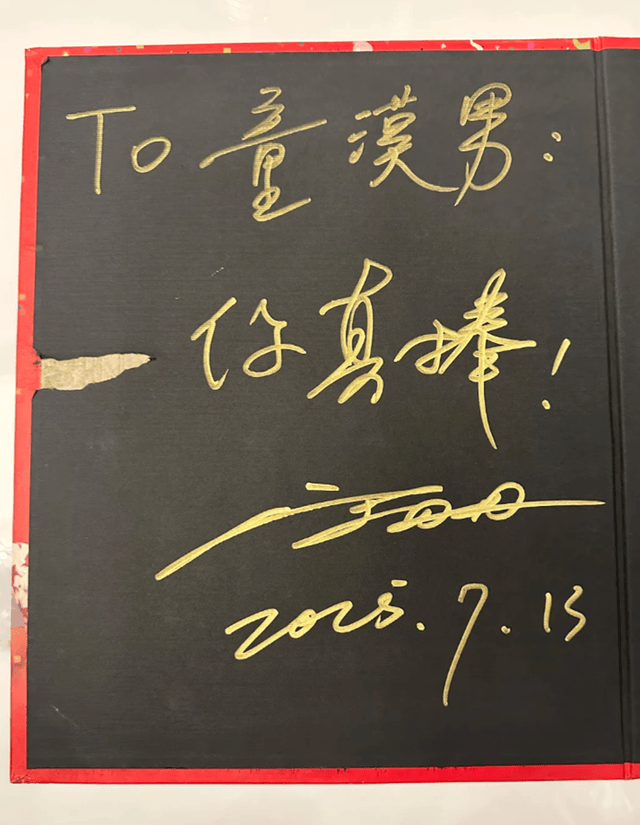 To 童漠男:
你真棒!
2025.7.13